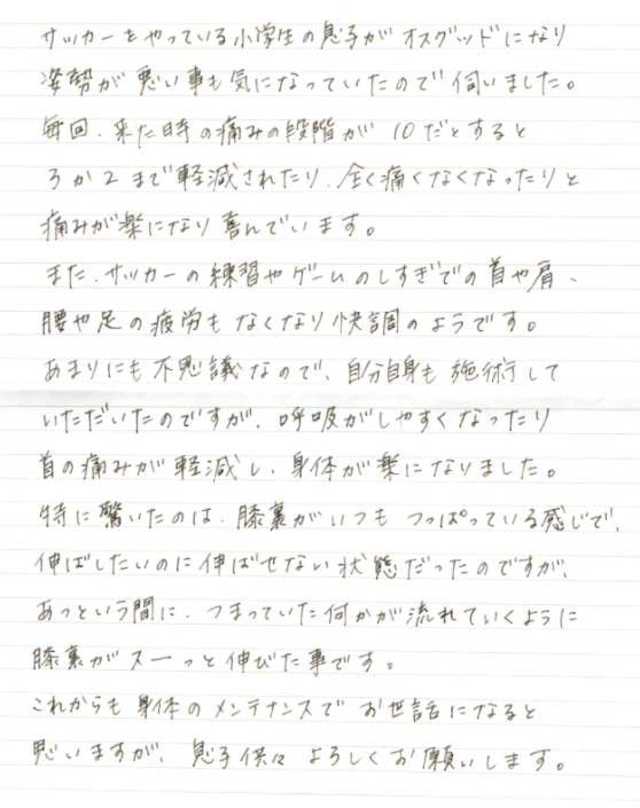 サッカーをやっている小学生の息子がオスグッドになり
姿勢が悪い事も気になっていたので伺いました。
毎回、来た時の痛みの段階が10だとすると
3か2まで軽減されたり、全く痛くなくなったりと
痛みが楽になり喜んでいます。
また、サッカーの練習やゲームのしすぎでの首や肩、
腰や足の疲労もなくなり快調のようです。
あまりにも不思議なので、自分自身も施術して
いただいたのですが、呼吸がしやすくなったり
首の痛みが軽減し、身体が楽になりました。
特に驚いたのは、膝裏がいつもつっぱっている感じで、
伸ばしたいのに伸ばせない状態だったのですが、
あっという間に、つまっていた何かが流れていくように
膝裏がスーっと伸びた事です。
これからも身体のメンテナンスでお世話になると
思いますが、息子供々よろしくお願いします。